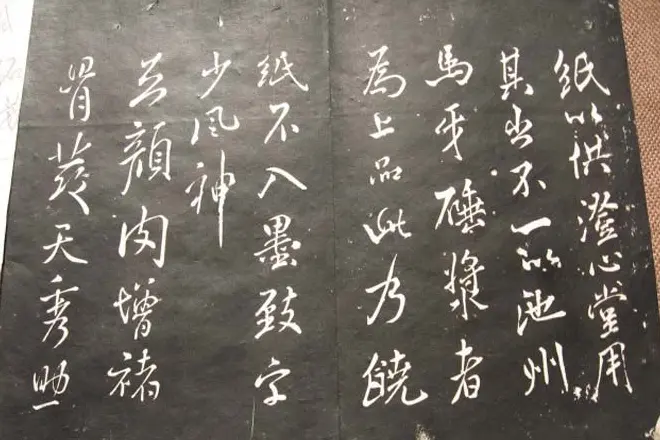 紙以供澄心堂用
其出不一以池州
馬牙硾漿者
為上品此乃饒
紙不入墨致字
少風神
公顏肉增褚
骨蔆天秀助